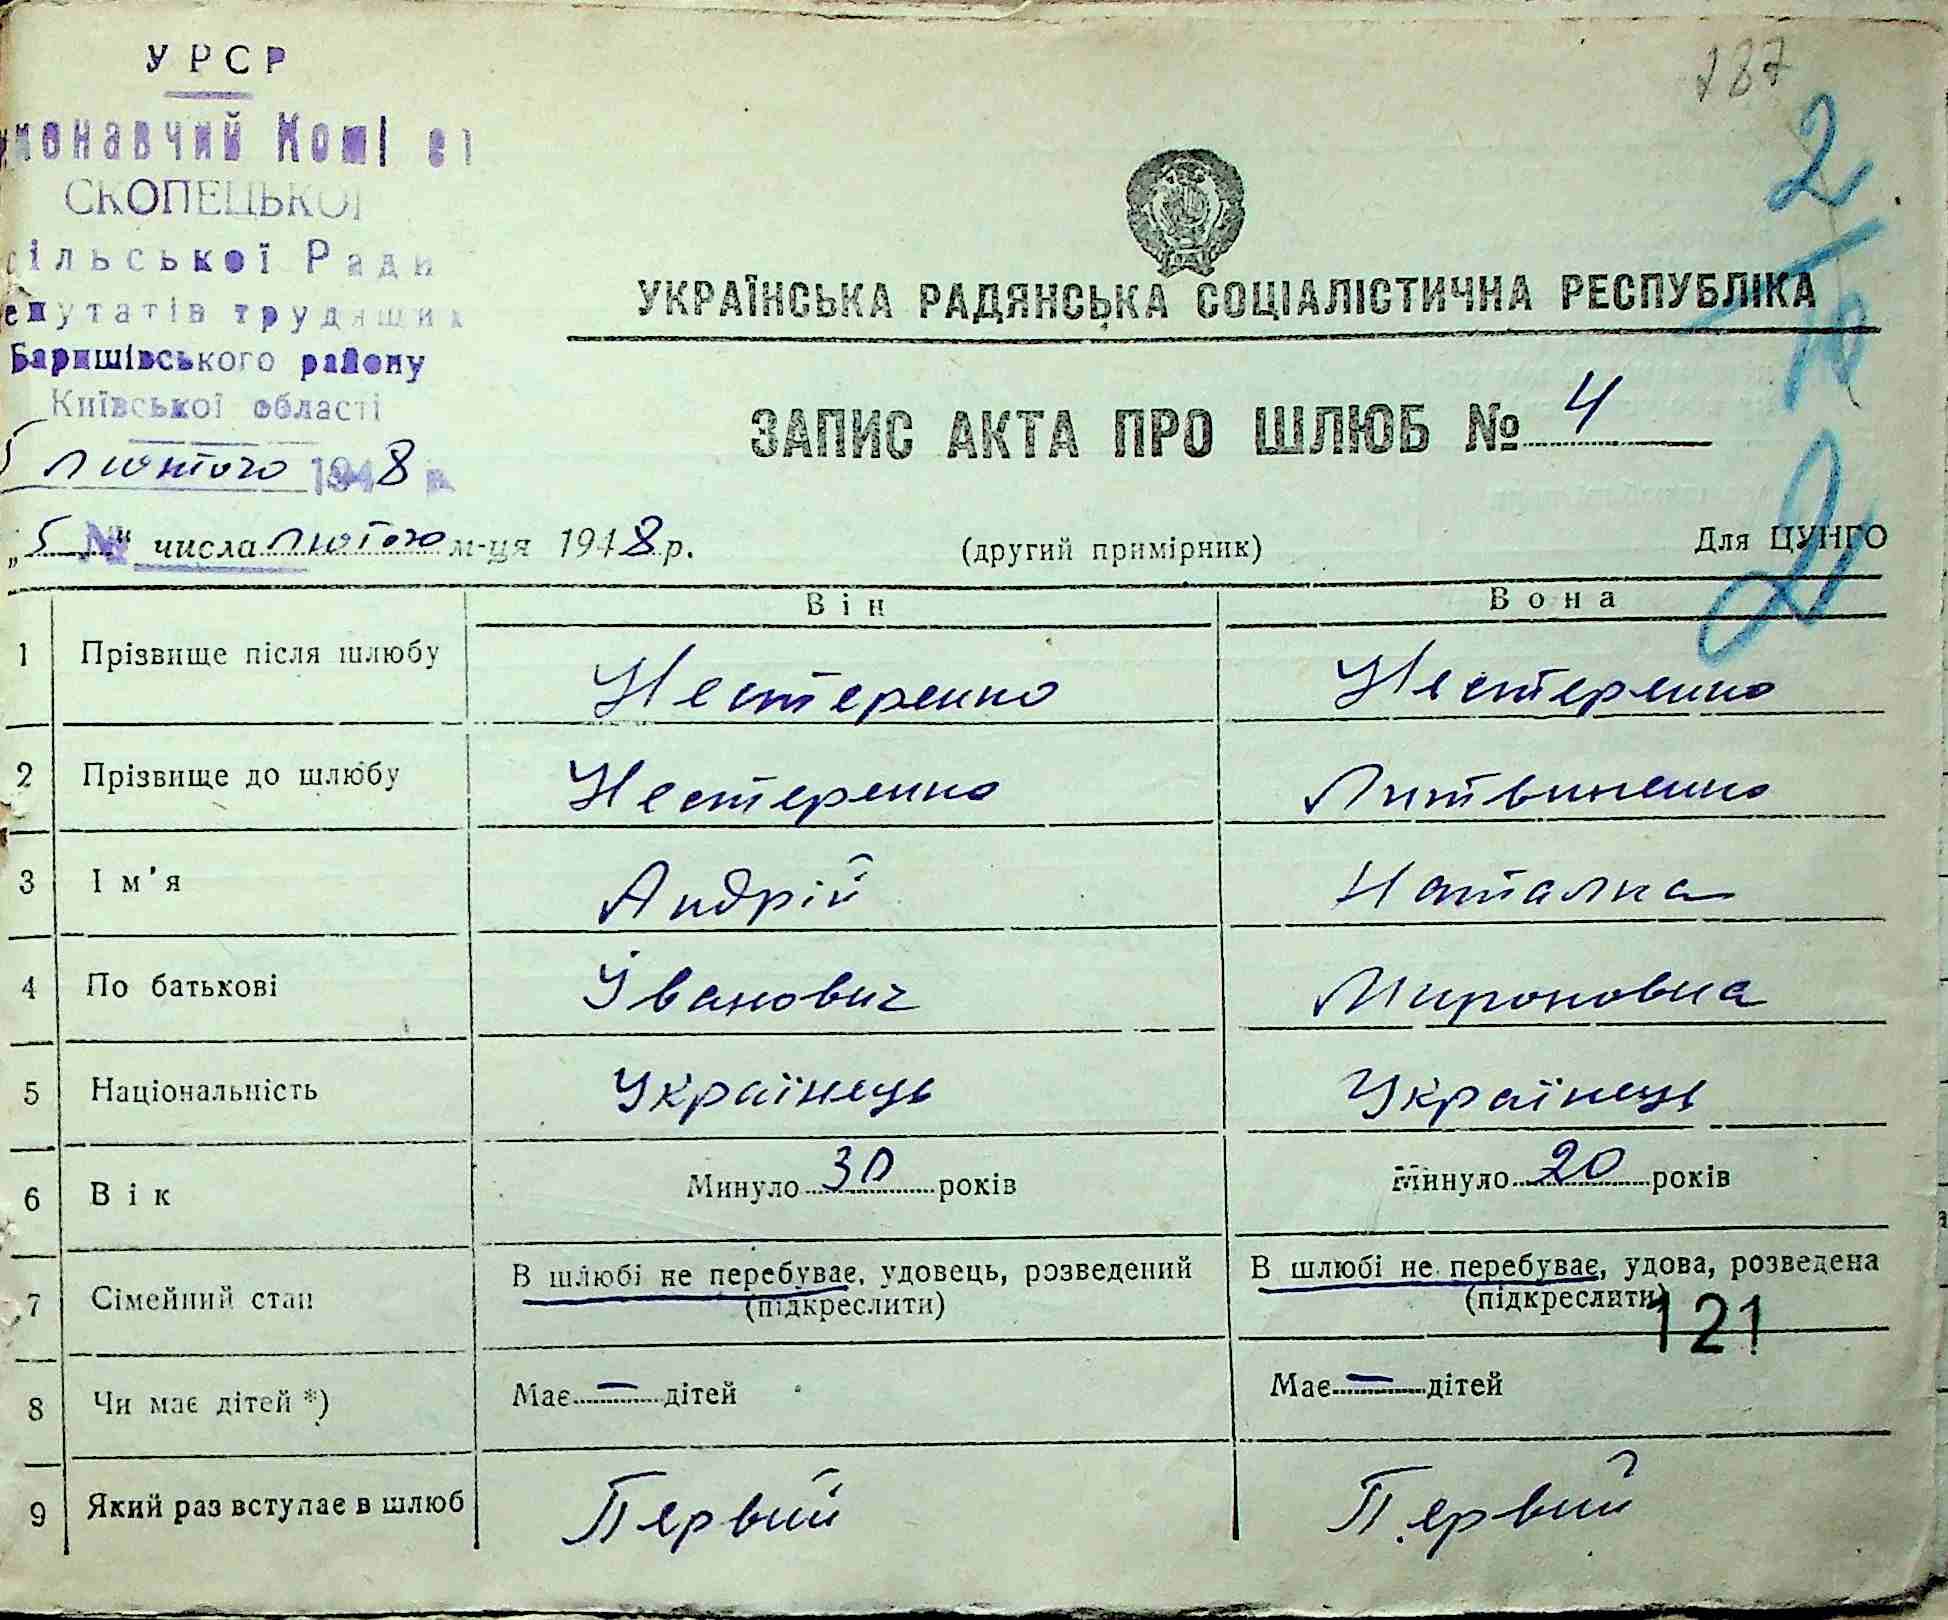 187
УРСР
иконавчий Коміт
СКОПЕЦЬКОЇ
сільської Ради
епутатів трудящих
Баришівського району
Київської області
5 лютого 1948 р.
2
УКРАЇНСЬКА РАДЯНСЬКА СОЦІАЛІСТИЧНА РЕСПУБЛІКА
ЗАПИС АКТА ПРО ШЛЮБ № 4
„5 №" числа лютого м-ця 1948 р. (другий примірник) Для ЦУНГО
Він Вона
1 Прізвище після шлюбу Нестеренко Нестеренко
2 Прізвище до шлюбу Нестеренко Литвиненко
3 Ім'я Андрій Наталка
4 По батькові Іванович Мироновна
5 Національність Українець Українець
6 Вік Минуло 30 років Минуло 20 років
7 Сімейний стан В шлюбі не перебуває, удовець, розведений В шлюбі не перебуває, удова, розведена
(підкреслити) (підкреслити)
121
8 Чи має дітей *) Має — дітей Має — дітей
9 Який раз вступає в шлюб Первий Первий